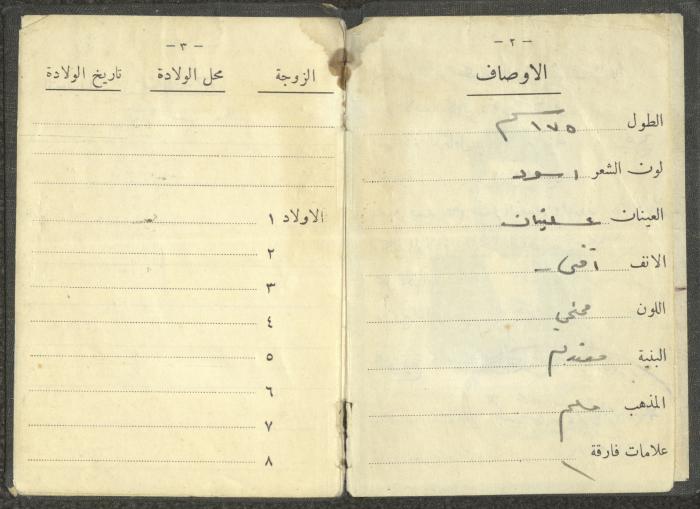 - ٢ -
الاوصاف
الطول ١٧٥ سم
لون الشعر اسود
العينان عسليتان
الانف اقنى
اللون
البنية
المذهب مسلم
علامات فارقة /
- ٣ -
الزوجة محل الولادة تاريخ الولادة
الاولاد ١
٢
٣
٤
٥
٦
٧
٨